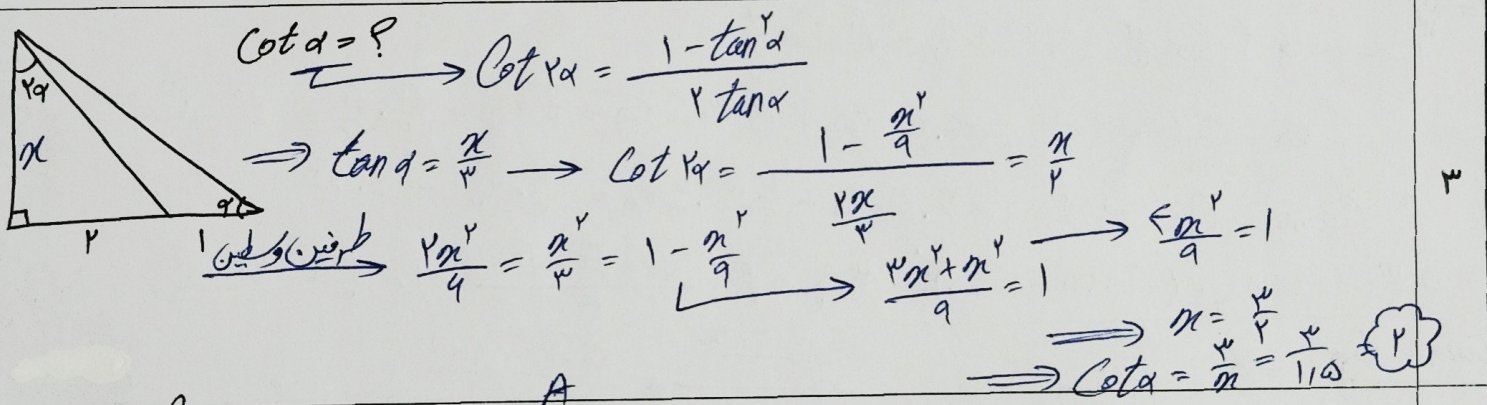 Cot α = ?
→ Cot ۲α = (۱ - tan^۲ α) / (۲ tan α)
۲α
x
۲
۱
α
⇒ tan α = x/۳ → Cot ۲α = (۱ - x^۲/۹) / (۲x/۳) = x/۲
۳
طرفین وسطین → ۲x^۲/۶ = x^۲/۳ = ۱ - x^۲/۹ → (۳x^۲ + x^۲)/۹ = ۱ → ۴x^۲/۹ = ۱
⇒ x = ۳/۲
⇒ Cot α = ۳/x = ۳/۱,۵ = ۲
A